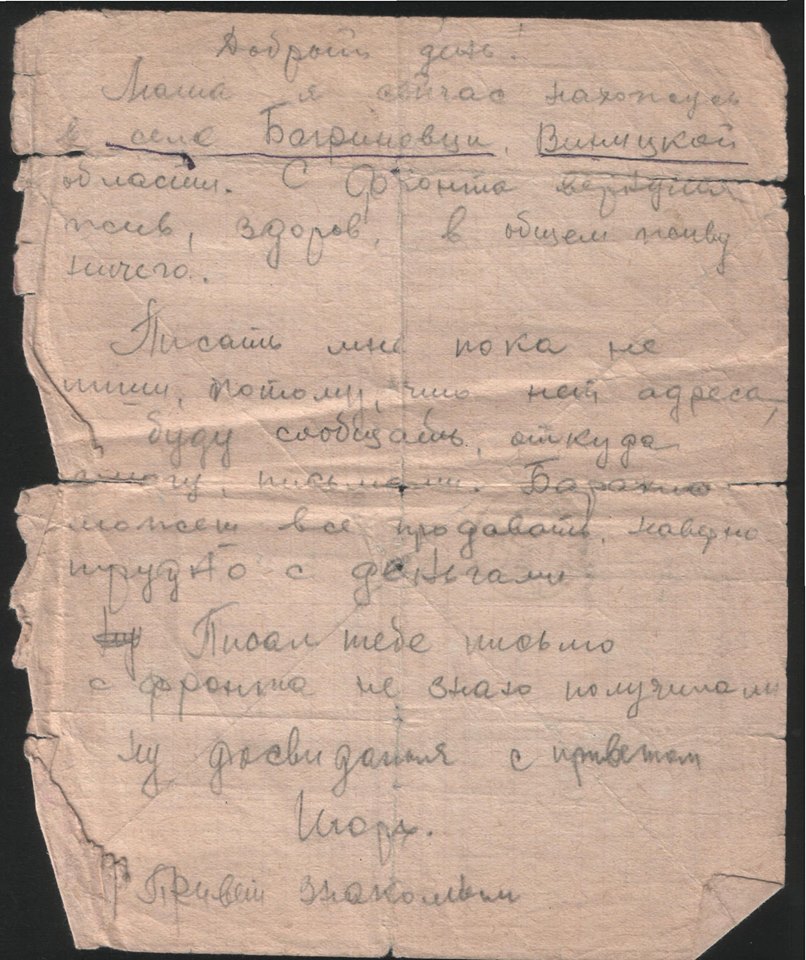 Добрый день!
Маша я сейчас нахожусь
в селе Багриновци, Виницкой
области. С фронта вернулся
жив, здоров, в общем живу
ничего.
Писать мне пока не
пиши, потому, что нет адреса,
буду сообщать, откуда
смогу, письмами. Барахло
можеш все продавать, наверно
трудно с деньгами
Писал тебе письмо
с фронта не знаю получила ли
Ну досвидания с приветом
Игорь.
Привет знакомым